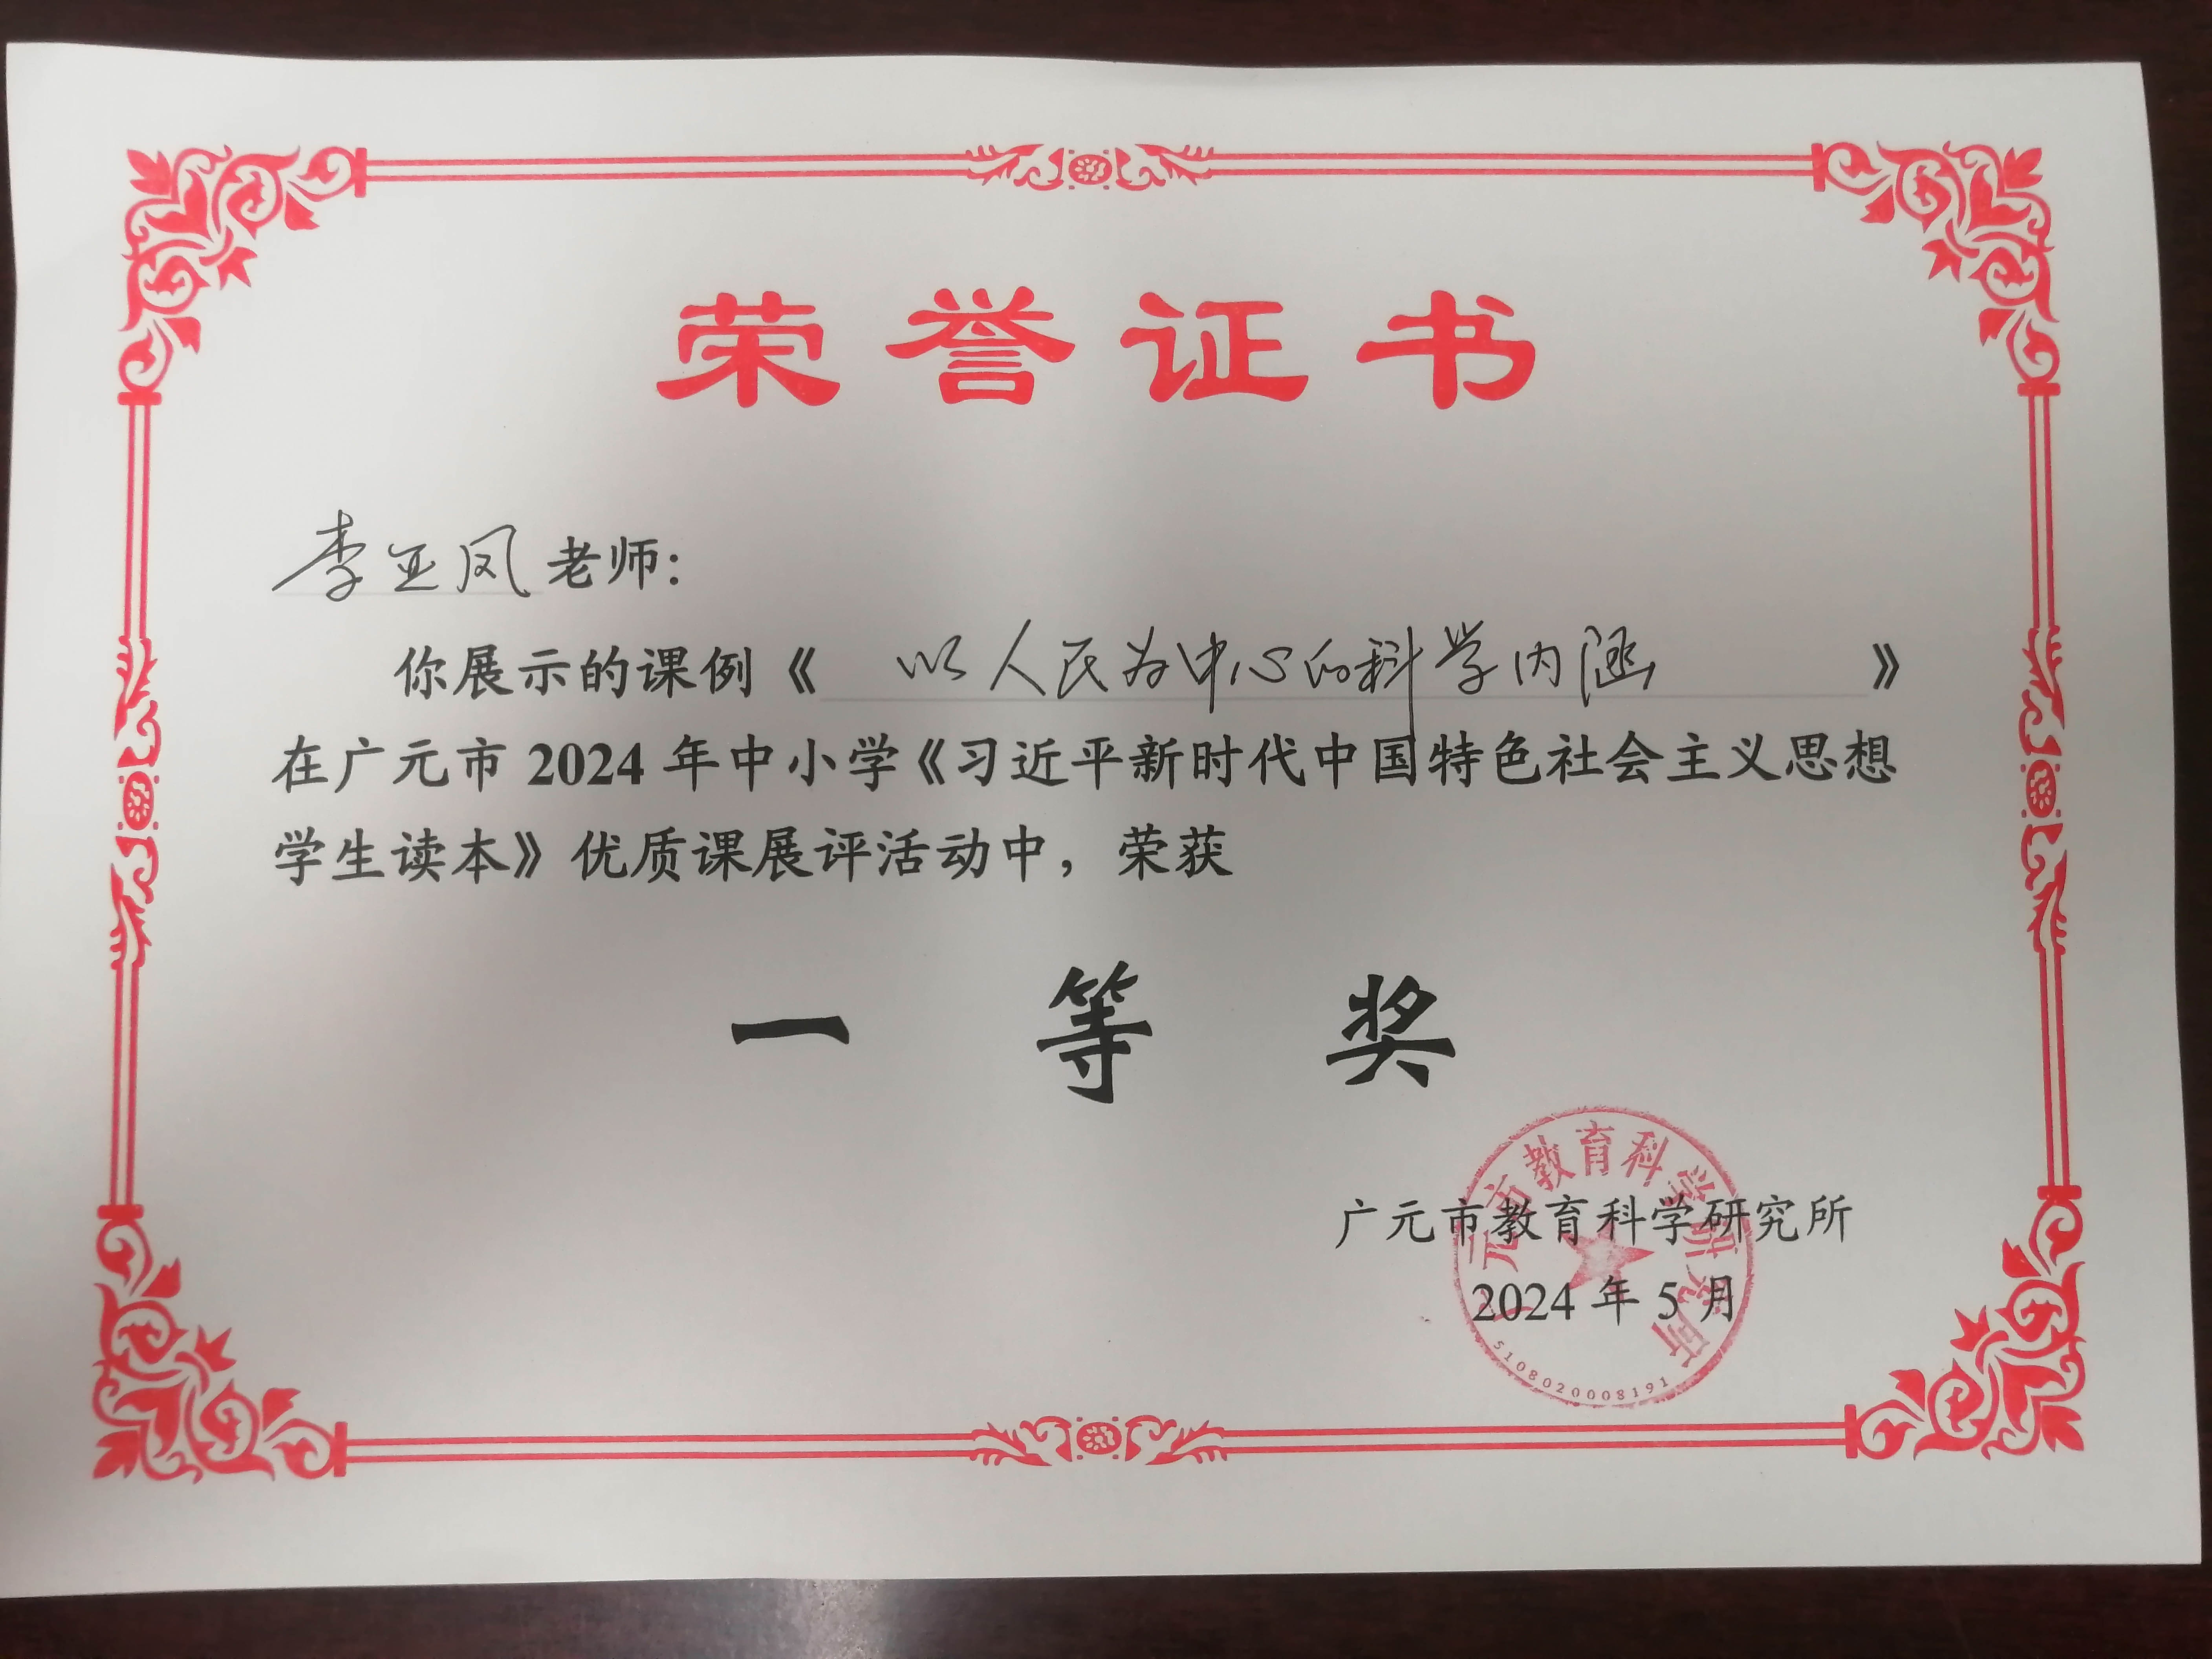 荣誉证书
李亚凤老师：
你展示的课例《以人民为中心的科学内涵》
在广元市2024年中小学《习近平新时代中国特色社会主义思想
学生读本》优质课展评活动中，荣获
一等奖
广元市教育科学研究所
2024年5月
广元市教育科学研究所
5108020008191